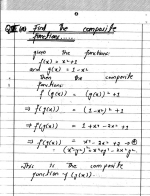 (a) Find the composite
functions
given the functions
f(x) = x² + 1
and g(x) = 1 - x²
Then the composite
function
f(g(x)) = (g(x))² + 1
⇒ f(g(x)) = (1 - x²)² + 1
⇒ f(g(x)) = 1 + x⁴ - 2x² + 1
⇒ f(g(x)) = x⁴ - 2x² + 2
This is the composite
function f(g(x)).